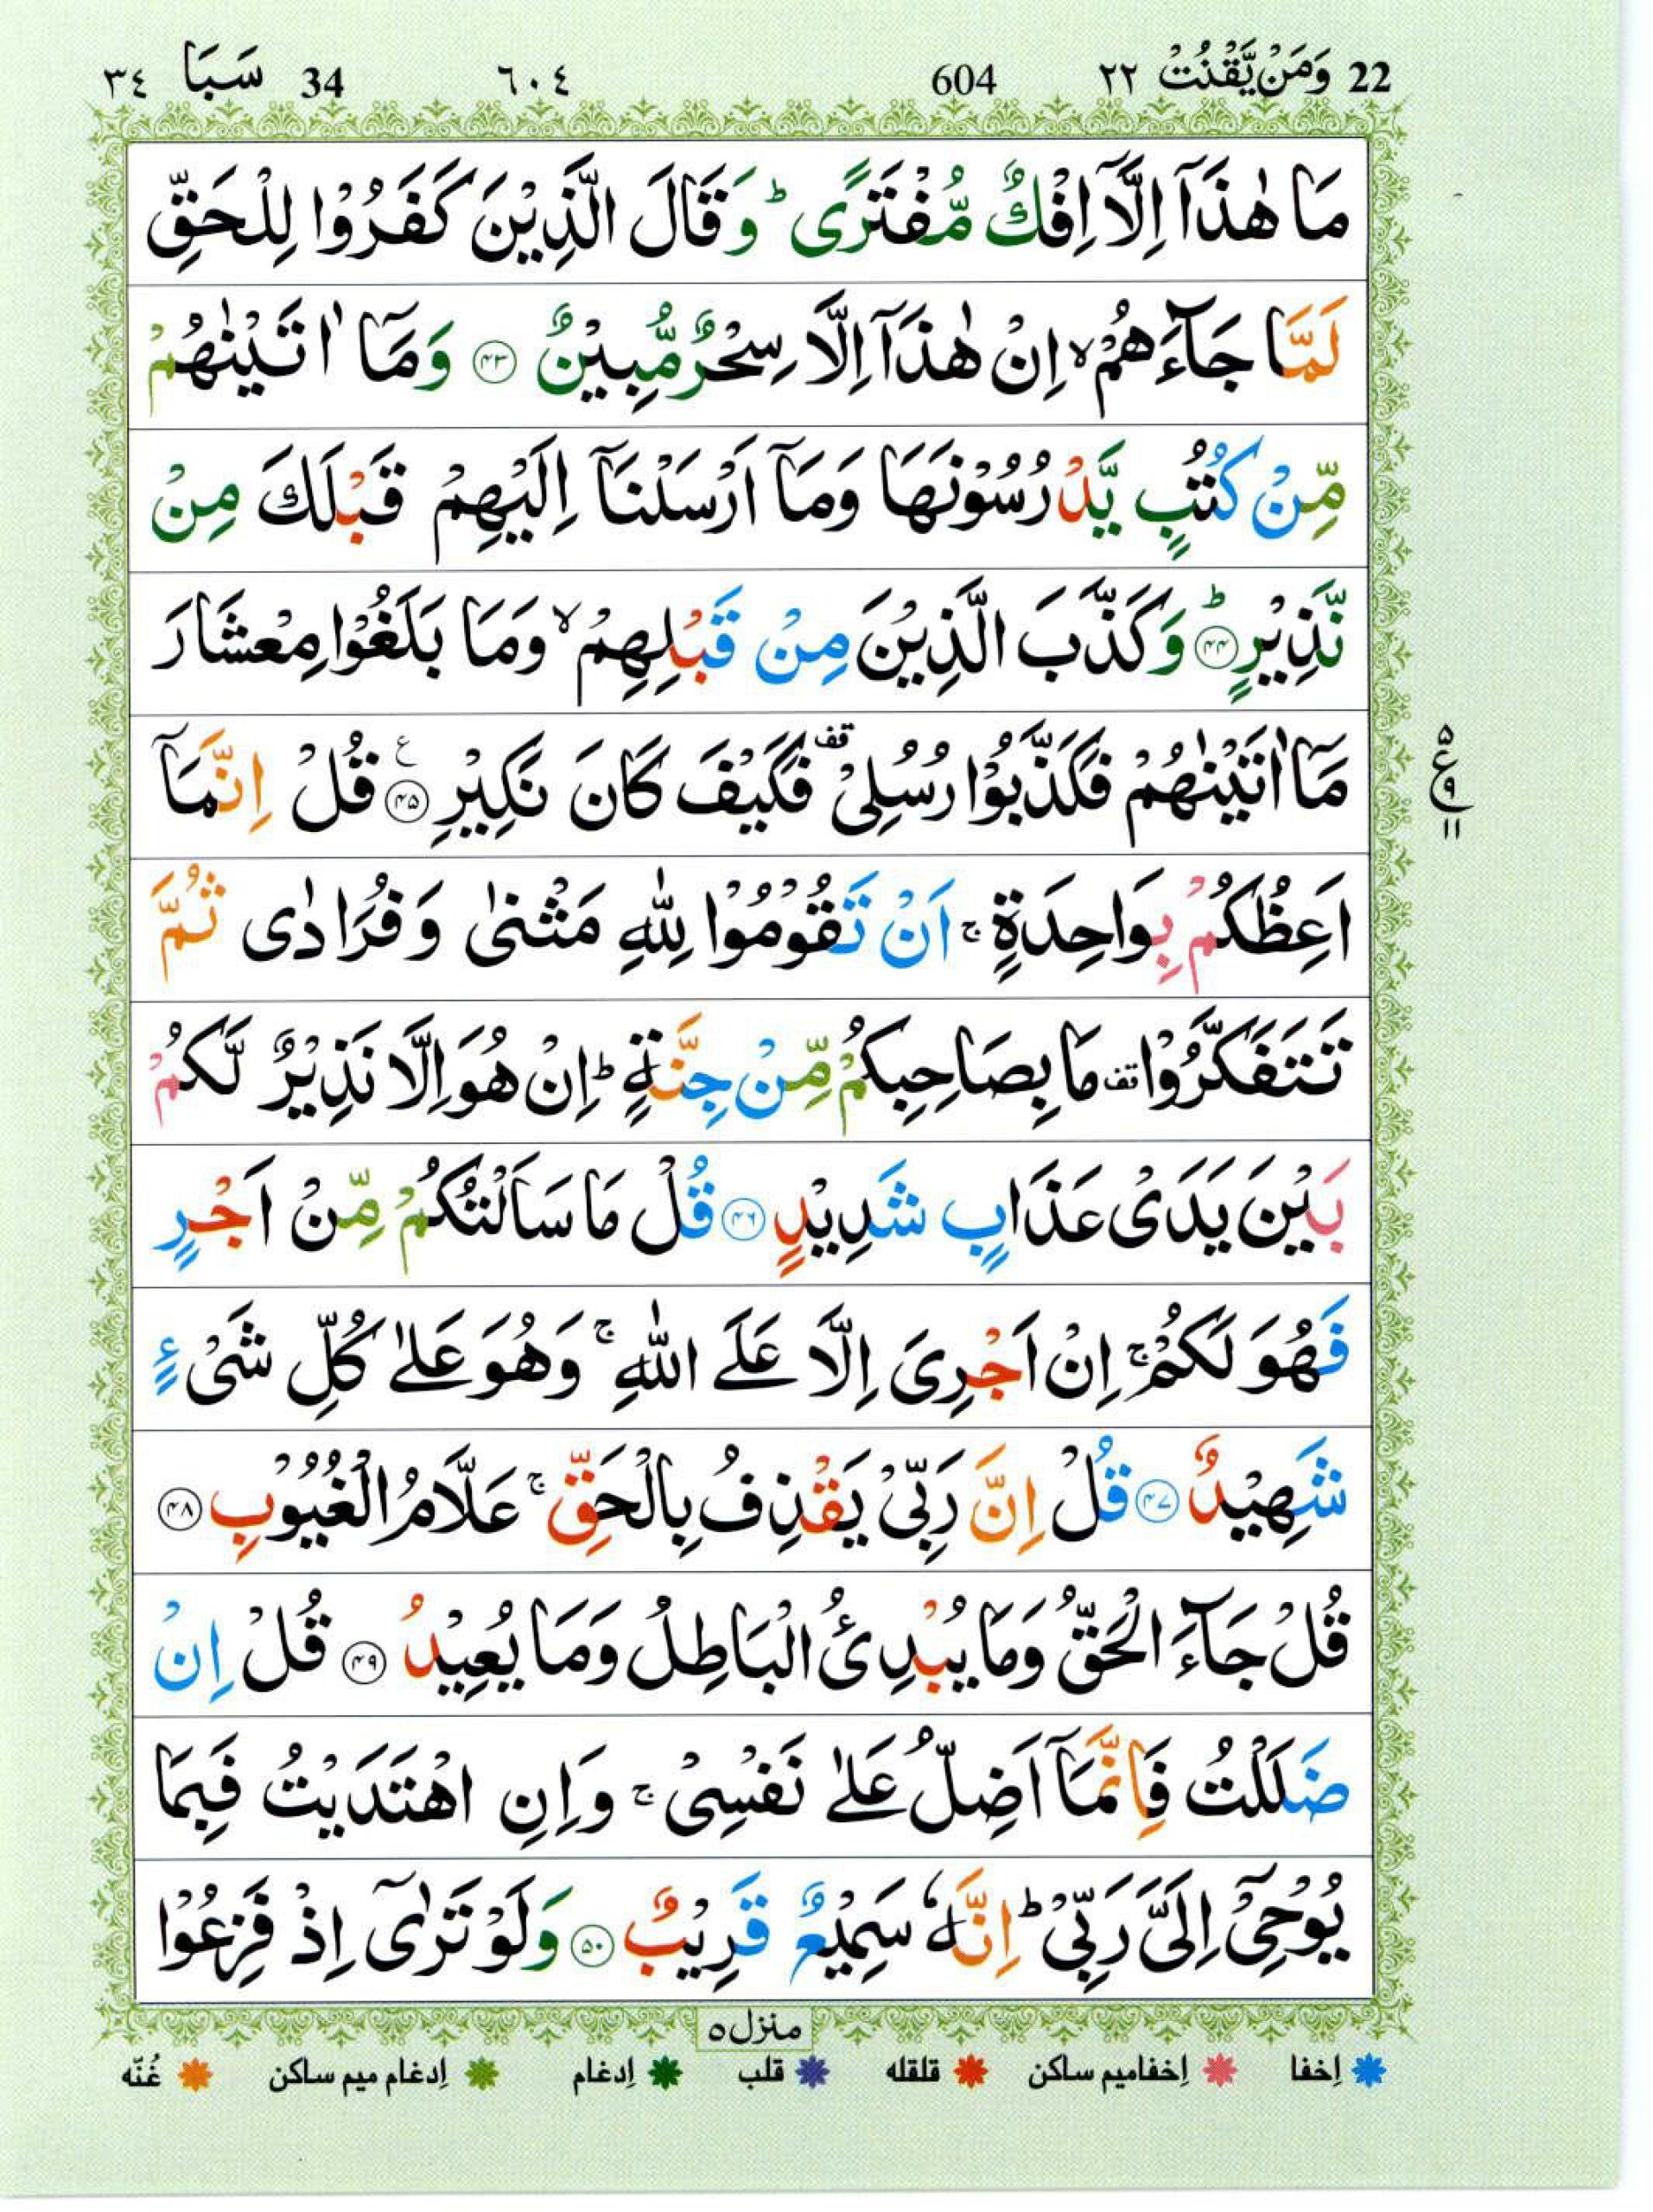 22 وَمَنْ يَّقْنُتْ ٢٢ 604 ٦٠٤ 34 سَبَا ٣٤
مَا هٰذَآ اِلَّاۤ اِفْكٌ مُّفْتَرًى ؕ وَقَالَ الَّذِيْنَ كَفَرُوْا لِلْحَقِّ
لَمَّا جَآءَهُمْ ۙ اِنْ هٰذَاۤ اِلَّا سِحْرٌ مُّبِيْنٌ ﴿۴۳﴾ وَمَاۤ اٰتَيْنٰهُمْ
مِّنْ كُتُبٍ يَّدْرُسُوْنَهَا وَمَاۤ اَرْسَلْنَاۤ اِلَيْهِمْ قَبْلَكَ مِنْ
نَّذِيْرٍ ؕ ﴿۴۴﴾ وَكَذَّبَ الَّذِيْنَ مِنْ قَبْلِهِمْ ۙ وَمَا بَلَغُوْا مِعْشَارَ
مَاۤ اٰتَيْنٰهُمْ فَكَذَّبُوْا رُسُلِيْ قف فَكَيْفَ كَانَ نَكِيْرِ ﴿۴۵﴾ ع قُلْ اِنَّمَاۤ
۵ ع ۹ ۱۱
اَعِظُكُمْ بِوَاحِدَةٍ ۚ اَنْ تَقُوْمُوْا لِلّٰهِ مَثْنٰى وَفُرَادٰى ثُمَّ
تَتَفَكَّرُوْا قف مَا بِصَاحِبِكُمْ مِّنْ جِنَّةٍ ؕ اِنْ هُوَ اِلَّا نَذِيْرٌ لَّكُمْ
بَيْنَ يَدَيْ عَذَابٍ شَدِيْدٍ ﴿۴۶﴾ قُلْ مَا سَاَلْتُكُمْ مِّنْ اَجْرٍ
فَهُوَ لَكُمْ ۚ اِنْ اَجْرِيَ اِلَّا عَلَى اللّٰهِ ۚ وَهُوَ عَلٰى كُلِّ شَيْءٍ
شَهِيْدٌ ﴿۴۷﴾ قُلْ اِنَّ رَبِّيْ يَقْذِفُ بِالْحَقِّ ۚ عَلَّامُ الْغُيُوْبِ ﴿۴۸﴾
قُلْ جَآءَ الْحَقُّ وَمَا يُبْدِئُ الْبَاطِلُ وَمَا يُعِيْدُ ﴿۴۹﴾ قُلْ اِنْ
ضَلَلْتُ فَاِنَّمَاۤ اَضِلُّ عَلٰى نَفْسِيْ ۚ وَاِنِ اهْتَدَيْتُ فَبِمَا
يُوْحِيْۤ اِلَيَّ رَبِّيْ ؕ اِنَّهٗ سَمِيْعٌ قَرِيْبٌ ﴿۵۰﴾ وَلَوْ تَرٰۤى اِذْ فَزِعُوْا
منزل ٥
إخفا إخفاميم ساكن قلقله قلب إدغام إدغام ميم ساكن غُنّه